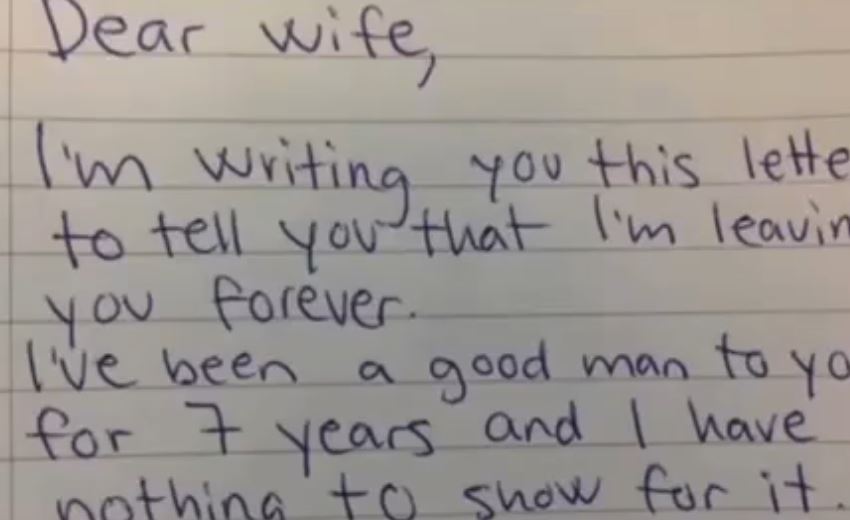 Dear wife,
I'm writing you this lette
to tell you that I'm leavin
you forever.
I've been a good man to yo
for 7 years and I have
nothing to show for it.